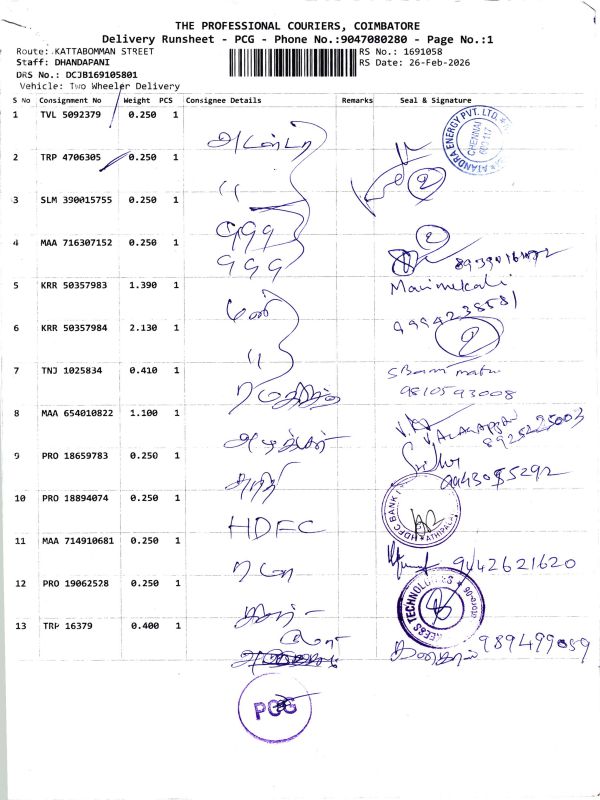 THE PROFESSIONAL COURIERS, COIMBATORE
Delivery Runsheet - PCG - Phone No.:9047080280 - Page No.:1
Route: KATTABOMMAN STREET RS No.: 1691058
Staff: DHANDAPANI RS Date: 26-Feb-2026
DRS No.: DCJB169105801
Vehicle: Two Wheeler Delivery
S No Consignment No Weight PCS Consignee Details Remarks Seal & Signature
1 TVL 5092379 0.250 1
ATANDRA ENERGY PVT. LTD. CHENNAI
2 TRP 4706305 0.250 1 " 2
3 SLM 390015755 0.250 1 999
4 MAA 716307152 0.250 1 999 2
5 KRR 50357983 1.390 1 மணி
9994238581
6 KRR 50357984 2.130 1 " 2
7 TNJ 1025834 0.410 1
9810593008
8 MAA 654010822 1.100 1 V. ALAGAPPAN
8925225003
9 PRO 18659783 0.250 1
9943055292
10 PRO 18894074 0.250 1 HDFC HDFC BANK
11 MAA 714910681 0.250 1 9442621620
12 PRO 19062528 0.250 1 TECHNOLOGIES
13 TRP 16379 0.400 1
989499059
PCG